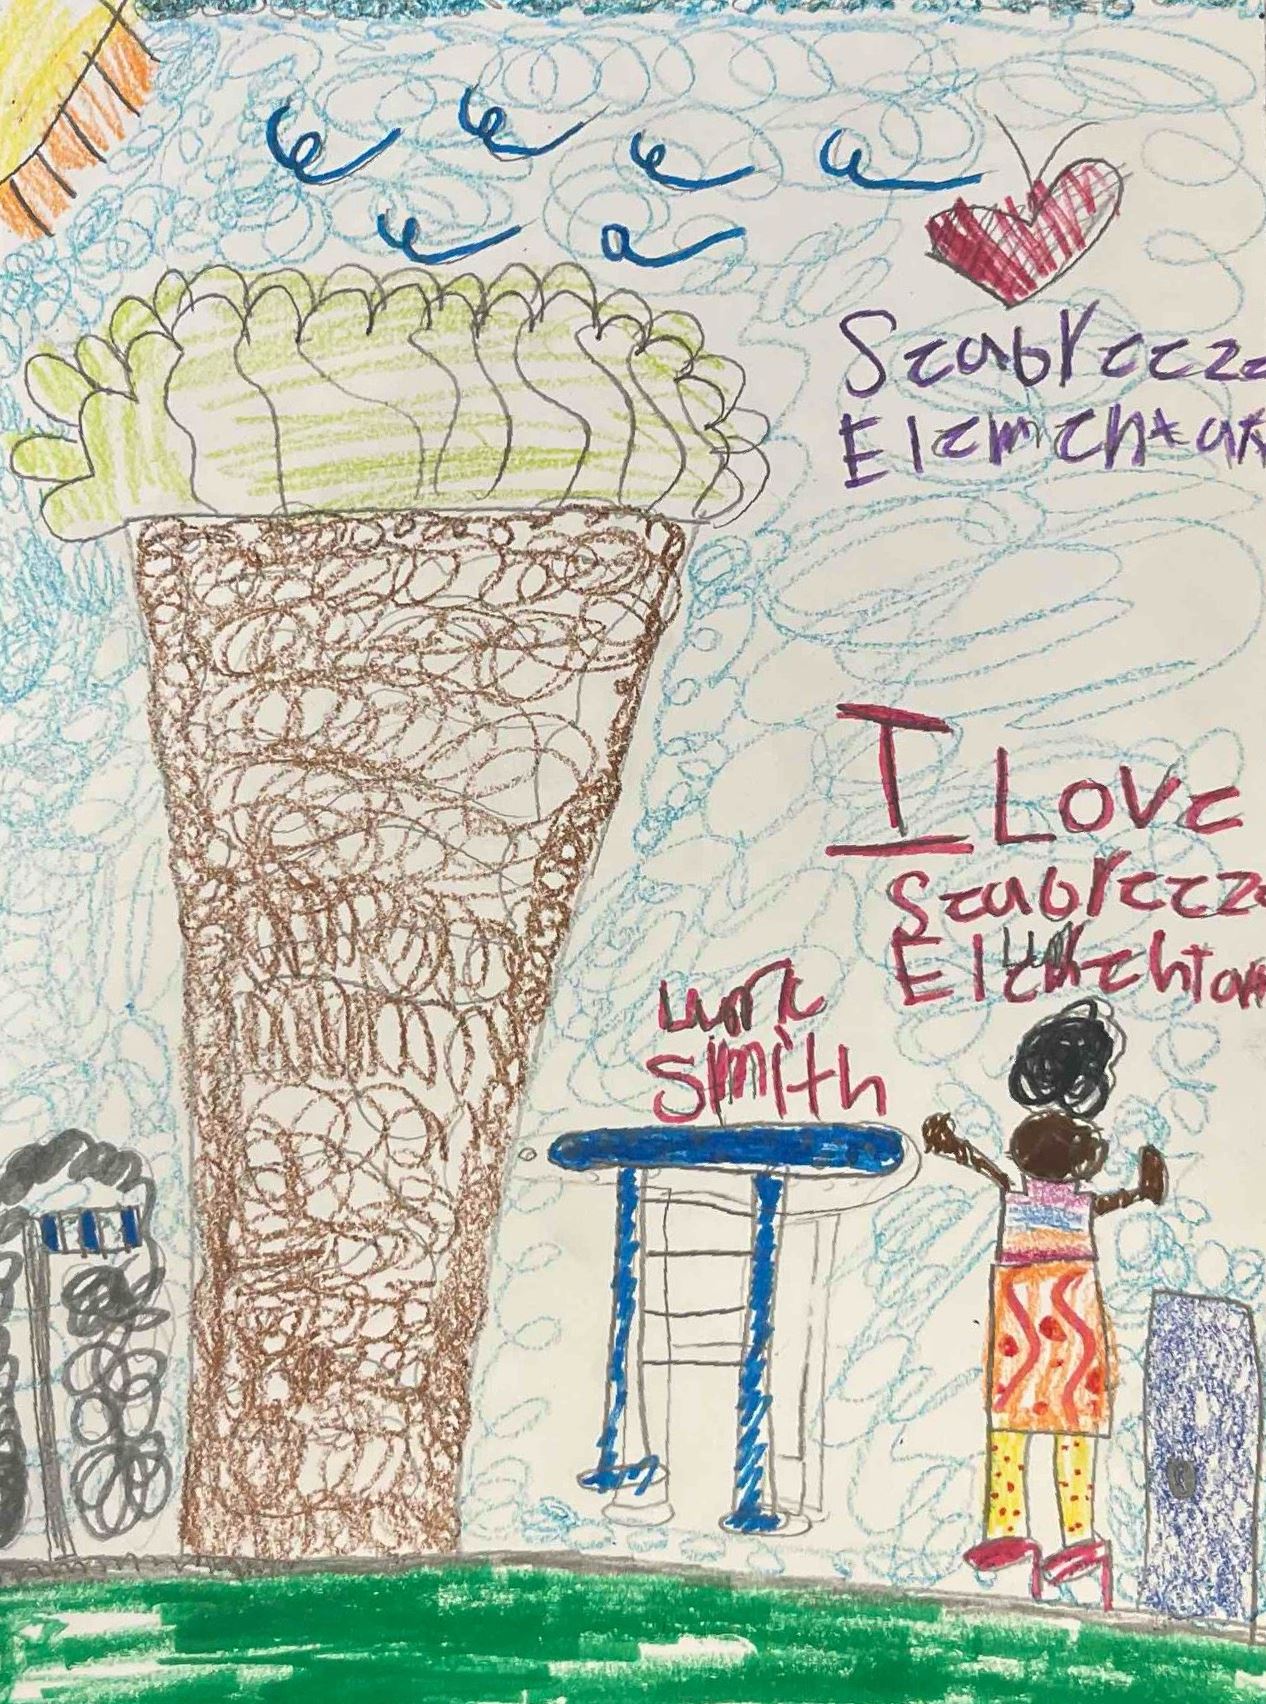 Seabreeze
Elementar
I Love
Seabreeze
Elementar
smith